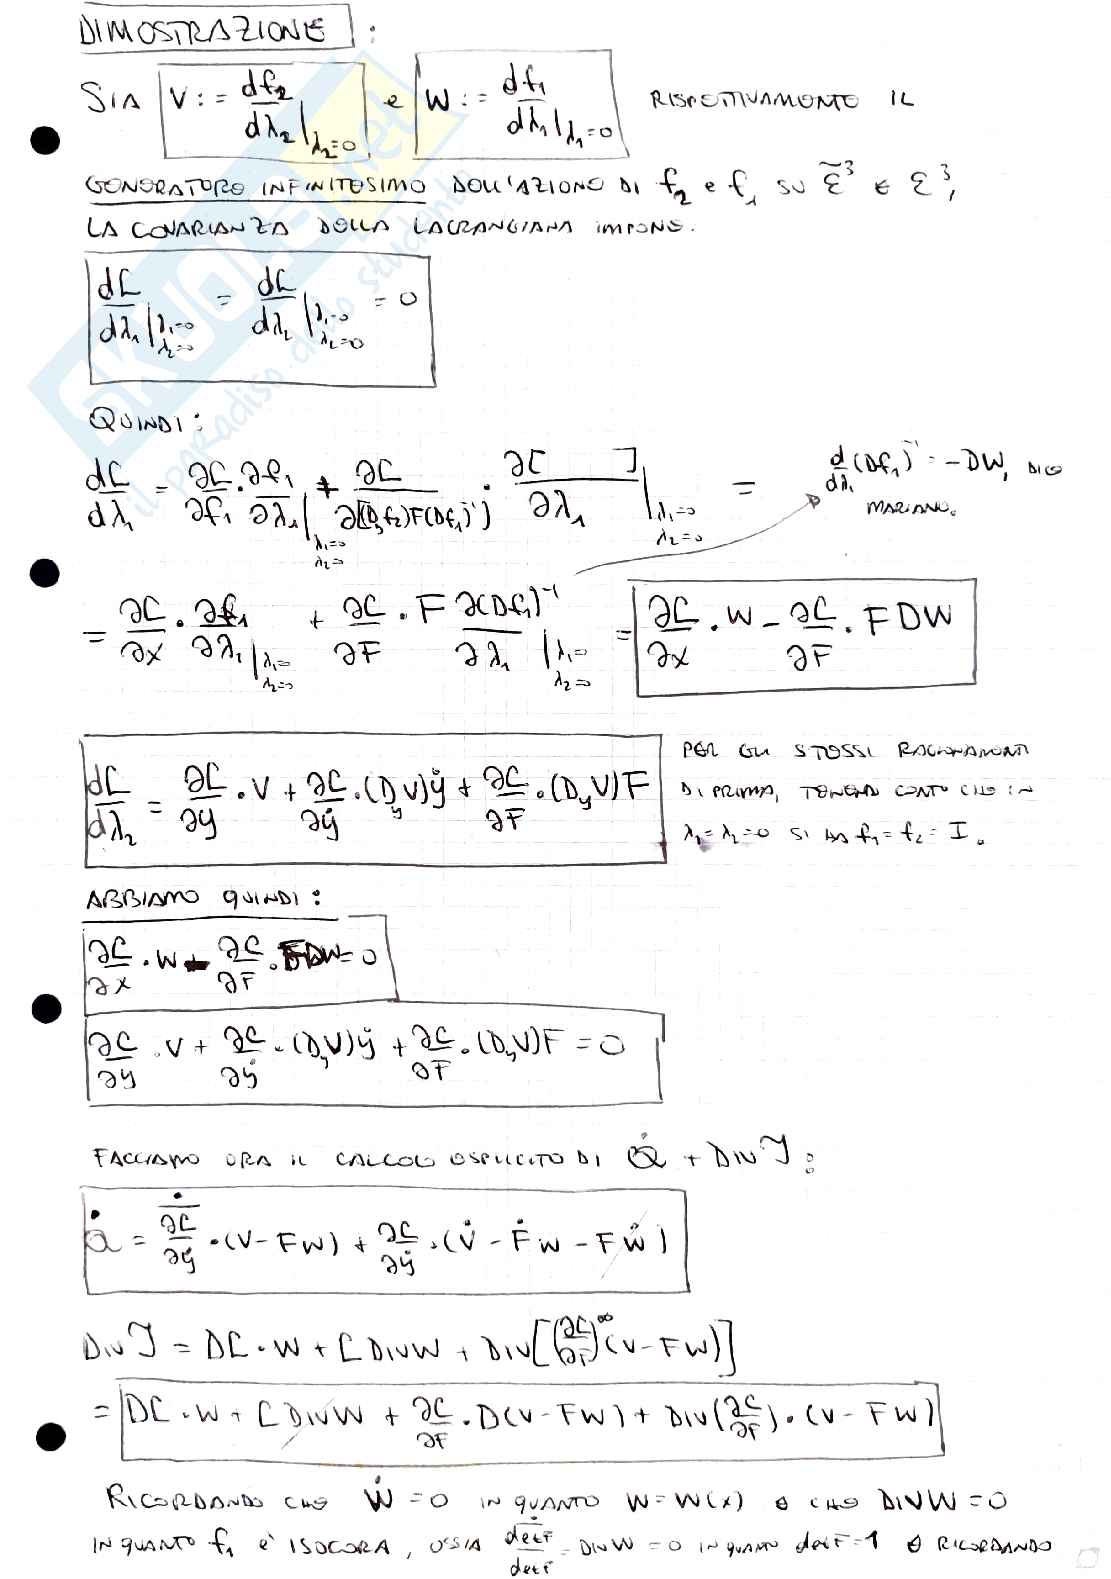 DIMOSTRAZIONE :
SIA V := df₂/dλ₂ |λ₂=0 e W := df₁/dλ₁ |λ₁=0 RISPETTIVAMENTE IL
GENERATORE INFINITESIMO DELL'AZIONE DI f₂ e f₁ SU Ẽ³ E E³,
LA COVARIANZA DELLA LAGRANGIANA IMPONE.
dL/dλ₁ |λ₁=0 λ₂=0 = dL/dλ₂ |λ₁=0 λ₂=0 = 0
QUINDI :
dL/dλ₁ = ∂L/∂f₁ · ∂f₁/∂λ₁ |λ₁=0 λ₂=0 + ∂L/∂[(D_y f₂)F(Df₁)⁻¹] · ∂[ ]/∂λ₁ |λ₁=0 λ₂=0 =
d/dλ₁ (Df₁)⁻¹ = -DW, DICE
MARIANO.
= ∂L/∂x · ∂f₁/∂λ₁ |λ₁=0 λ₂=0 + ∂L/∂F · F ∂(Df₁)⁻¹/∂λ₁ |λ₁=0 λ₂=0 = ∂L/∂x · W - ∂L/∂F · FDW
dL/dλ₂ = ∂L/∂y · V + ∂L/∂ẏ · (D_y V)ẏ + ∂L/∂F · (D_y V)F
PER GLI STESSI RAGIONAMENTI
DI PRIMA, TENENDO CONTO CHE IN
λ₁=λ₂=0 SI HA f₁=f₂=I.
ABBIAMO QUINDI :
∂L/∂x · W - ∂L/∂F · FDW = 0
∂L/∂y · V + ∂L/∂ẏ · (D_y V)ẏ + ∂L/∂F · (D_y V)F = 0
FACCIAMO ORA IL CALCOLO ESPLICITO DI Q̇ + DIV J :
Q̇ = (∂L/∂ẏ)˙ · (V - FW) + ∂L/∂ẏ · (V̇ - ḞW - FẆ)
DIV J = DL · W + L DIVW + DIV[(∂L/∂F)^∞ (V - FW)]
= DL · W + L DIVW + ∂L/∂F · D(V - FW) + DIV(∂L/∂F) · (V - FW)
RICORDANDO CHE Ẇ = 0 IN QUANTO W = W(X) E CHE DIVW = 0
IN QUANTO f₁ E' ISOCORA, OSSIA (detF)˙/detF = DIVW = 0 IN QUANTO detF=1 E RICORDANDO
SKUOLA.net
il paradiso dello studente